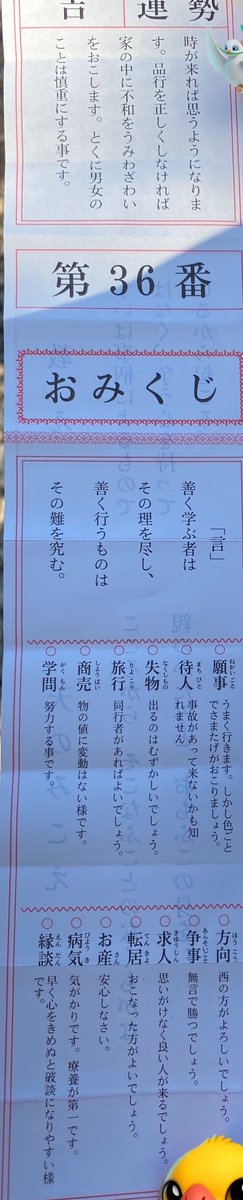 勢運吉
時が来れば思うようになりま
す。品行を正しくしなければ
家の中に不和をうみわざわい
をおこします。とくに男女の
ことは慎重にする事です。
第36番
おみくじ
「言」
善く学ぶ者は
その理を尽し、
善く行うものは
その難を究む。
願事 ねがいごと うまく行きます。しかし色ごと
でさまたげがおこりましょう。
待人 まちびと 事故があって来ないかも知
れません
失物 なくしもの 出るのはむずかしいでしょう。
旅行 りょこう 同行者があればよいでしょう。
商売 しょうばい 物の値に変動はない様です。
学問 がくもん 努力する事です。
方向 ほうこう 西の方がよろしいでしょう。
争事 あらそいごと 無言で勝つでしょう。
求人 きゅうじん 思いがけなく良い人が来るでしょう。
転居 てんきょ おこなった方がよいでしょう。
お産 さん 安心しなさい。
病気 びょうき 気がかりです。療養が第一です。
縁談 えんだん 早く心をきめぬと破談になりやすい様
です。